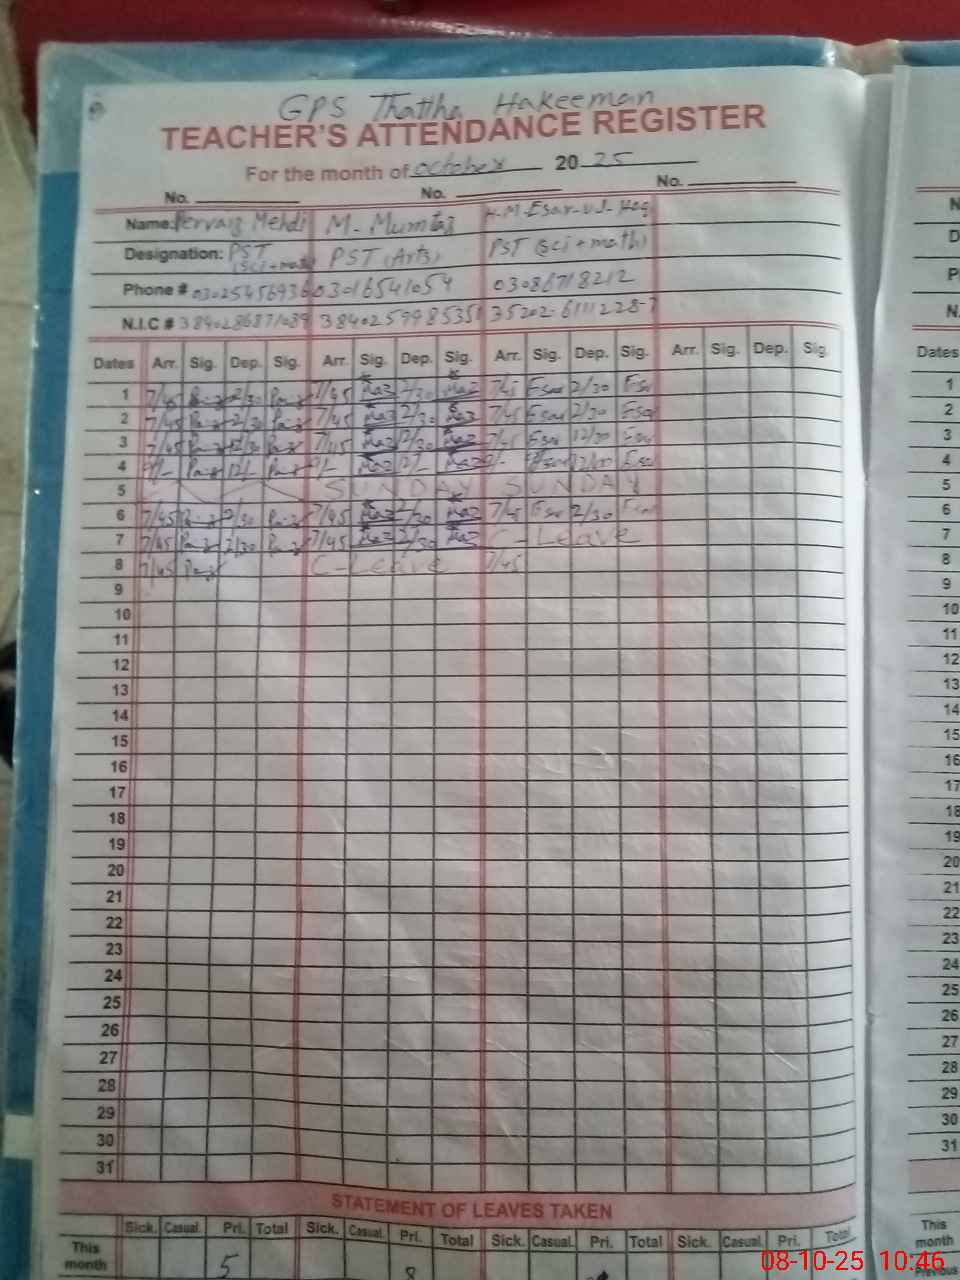 GPS Thattha Hakeeman
TEACHER'S ATTENDANCE REGISTER
For the month of october 2025
No. No. No.
Name: Pervaiz Mehdi M. Mumtaz H.M. Esar-ul-Haq
Designation: PST (Sci + math) PST (Arts) PST (sci + math)
Phone # 03025456936 03016541054 03086718212
N.I.C # 3840286871089 3840259985351 35202-6111228-7
Dates Arr. Sig. Dep. Sig. Arr. Sig. Dep. Sig. Arr. Sig. Dep. Sig. Arr. Sig. Dep. Sig. Dates
1 7/45 2/30 7/45 Maz 2/30 Maz 7/45 Esar 2/30 Esar 1
2 7/45 2/30 7/45 Maz 2/30 Maz 7/45 Esar 2/30 Esar 2
3 7/45 12/30 7/45 Maz 12/30 Maz 7/45 Esar 12/30 Esar 3
4 12/- Maz 12/- Maz Esar 12/00 Esar 4
5 SUNDAY SUNDAY 5
6 7/45 2/30 7/45 Maz 2/30 Maz 7/45 Esar 2/30 Esar 6
7 7/45 2/30 7/45 Maz 2/30 Maz C-Leave 7
8 7/45 C-Leave 7/45 8
9 9
10 10
11 11
12 12
13 13
14 14
15 15
16 16
17 17
18 18
19 19
20 20
21 21
22 22
23 23
24 24
25 25
26 26
27 27
28 28
29 29
30 30
31 31
STATEMENT OF LEAVES TAKEN
Sick. Casual. Pri. Total Sick. Casual. Pri. Total Sick. Casual. Pri. Total Sick. Casual. Pri. Total
This month 5 8 This month
Previous
08-10-25 10:46